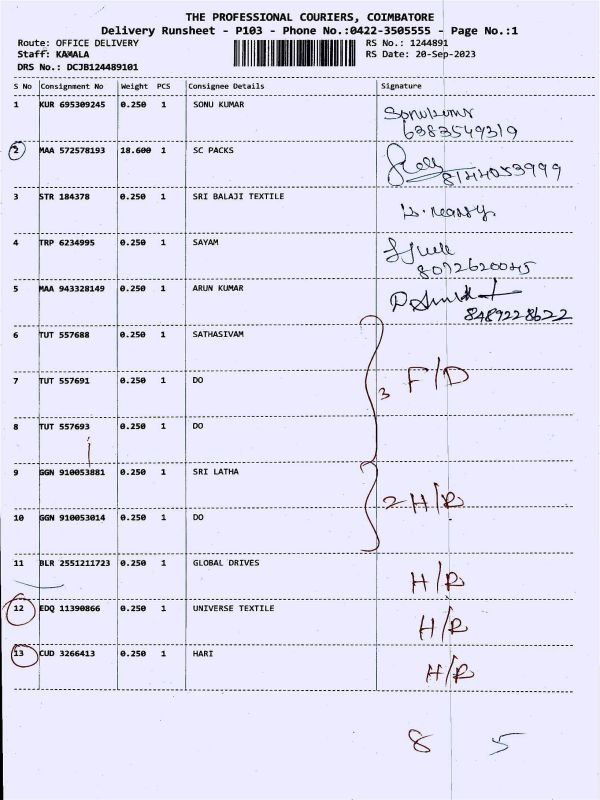 THE PROFESSIONAL COURIERS, COIMBATORE
Delivery Runsheet - P103 - Phone No.:0422-3505555 - Page No.:1
Route: OFFICE DELIVERY RS No.: 1244891
Staff: KAMALA RS Date: 20-Sep-2023
DRS No.: DCJB124489101
S No Consignment No Weight PCS Consignee Details Signature
1 KUR 695309245 0.250 1 SONU KUMAR
6383549319
2 MAA 572578193 18.600 1 SC PACKS
8144053999
3 STR 184378 0.250 1 SRI BALAJI TEXTILE
4 TRP 6234995 0.250 1 SAYAM
8072620045
5 MAA 943328149 0.250 1 ARUN KUMAR
8489228622
6 TUT 557688 0.250 1 SATHASIVAM
7 TUT 557691 0.250 1 DO 3 F/D
8 TUT 557693 0.250 1 DO
9 GGN 910053881 0.250 1 SRI LATHA
2 H/R
10 GGN 910053014 0.250 1 DO
11 BLR 2551211723 0.250 1 GLOBAL DRIVES H/R
12 EDQ 11390866 0.250 1 UNIVERSE TEXTILE H/R
13 CUD 3266413 0.250 1 HARI H/R
8 5